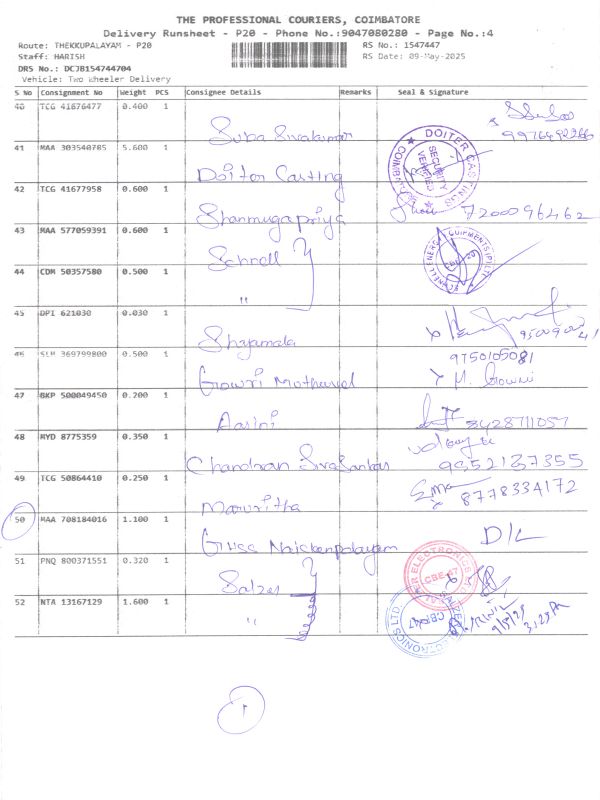 THE PROFESSIONAL COURIERS, COIMBATORE
Delivery Runsheet - P20 - Phone No.:9047080280 - Page No.:4
Route: THEKKUPALAYAM - P20
RS No.: 1547447
Staff: HARISH
RS Date: 09-May-2025
DRS No.: DCJB154744704
Vehicle: Two Wheeler Delivery
S No Consignment No Weight PCS Consignee Details Remarks Seal & Signature
40 TCG 41676477 0.400 1 Suba Sivakumar
41 MAA 303540785 5.600 1 Doitor Casting
DOITER CASTINGS SECURITY VERIFIED
42 TCG 41677958 0.600 1 Shanmugapriya 7200096462
43 MAA 577059391 0.600 1 Schnell
44 CDM 50357580 0.500 1 "
45 DPI 621030 0.030 1 Shyamala
46 SLM 369799800 0.500 1 Gowri 9750105081
M. Gowri
47 BKP 500049450 0.200 1 Aasini 8428711057
48 MYD 8775359 0.350 1 Chandran Sivasankar 9952137355
49 TCG 50864410 0.250 1 8778334172
50 MAA 708184016 1.100 1 D/L
51 PNQ 800371551 0.320 1 Salzer
CBE-47
52 NTA 13167129 1.600 1 "
9/5/25
1